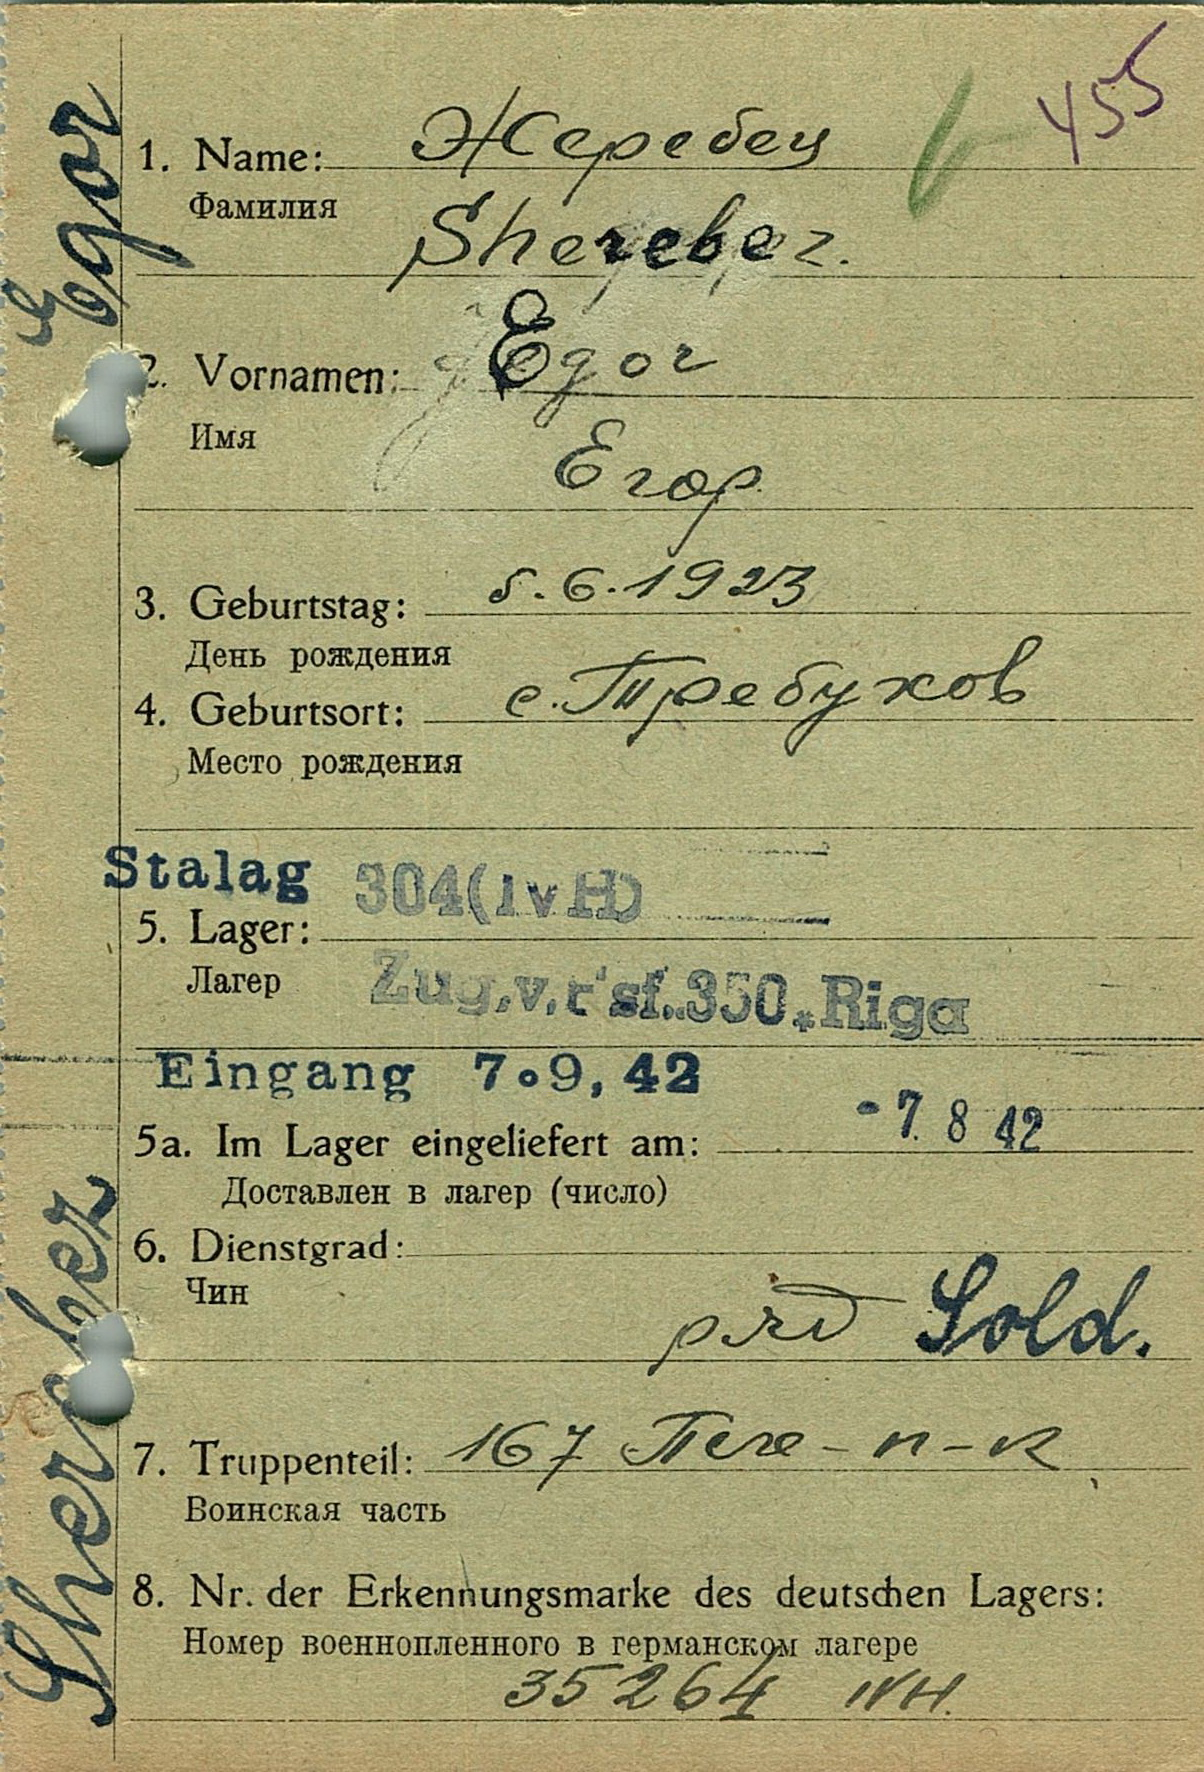 455
1. Name: Жеребец
Фамилия
Sherebez.
2. Vornamen: Egor
Имя
Егор
3. Geburtstag: 5.6.1923
День рождения
4. Geburtsort: с. Требухов
Место рождения
Stalag 304(IVH)
5. Lager:
Лагер
Zug.v. 350. Riga
Eingang 7.9,42
5a. Im Lager eingeliefert am: -7. 8 42
Доставлен в лагер (число)
6. Dienstgrad:
Чин
ряд Sold.
7. Truppenteil: 167 Пехе-п-к
Воинская часть
8. Nr. der Erkennungsmarke des deutschen Lagers:
Номер военнопленного в германском лагере
35264 IVH.
Sherebez Egor